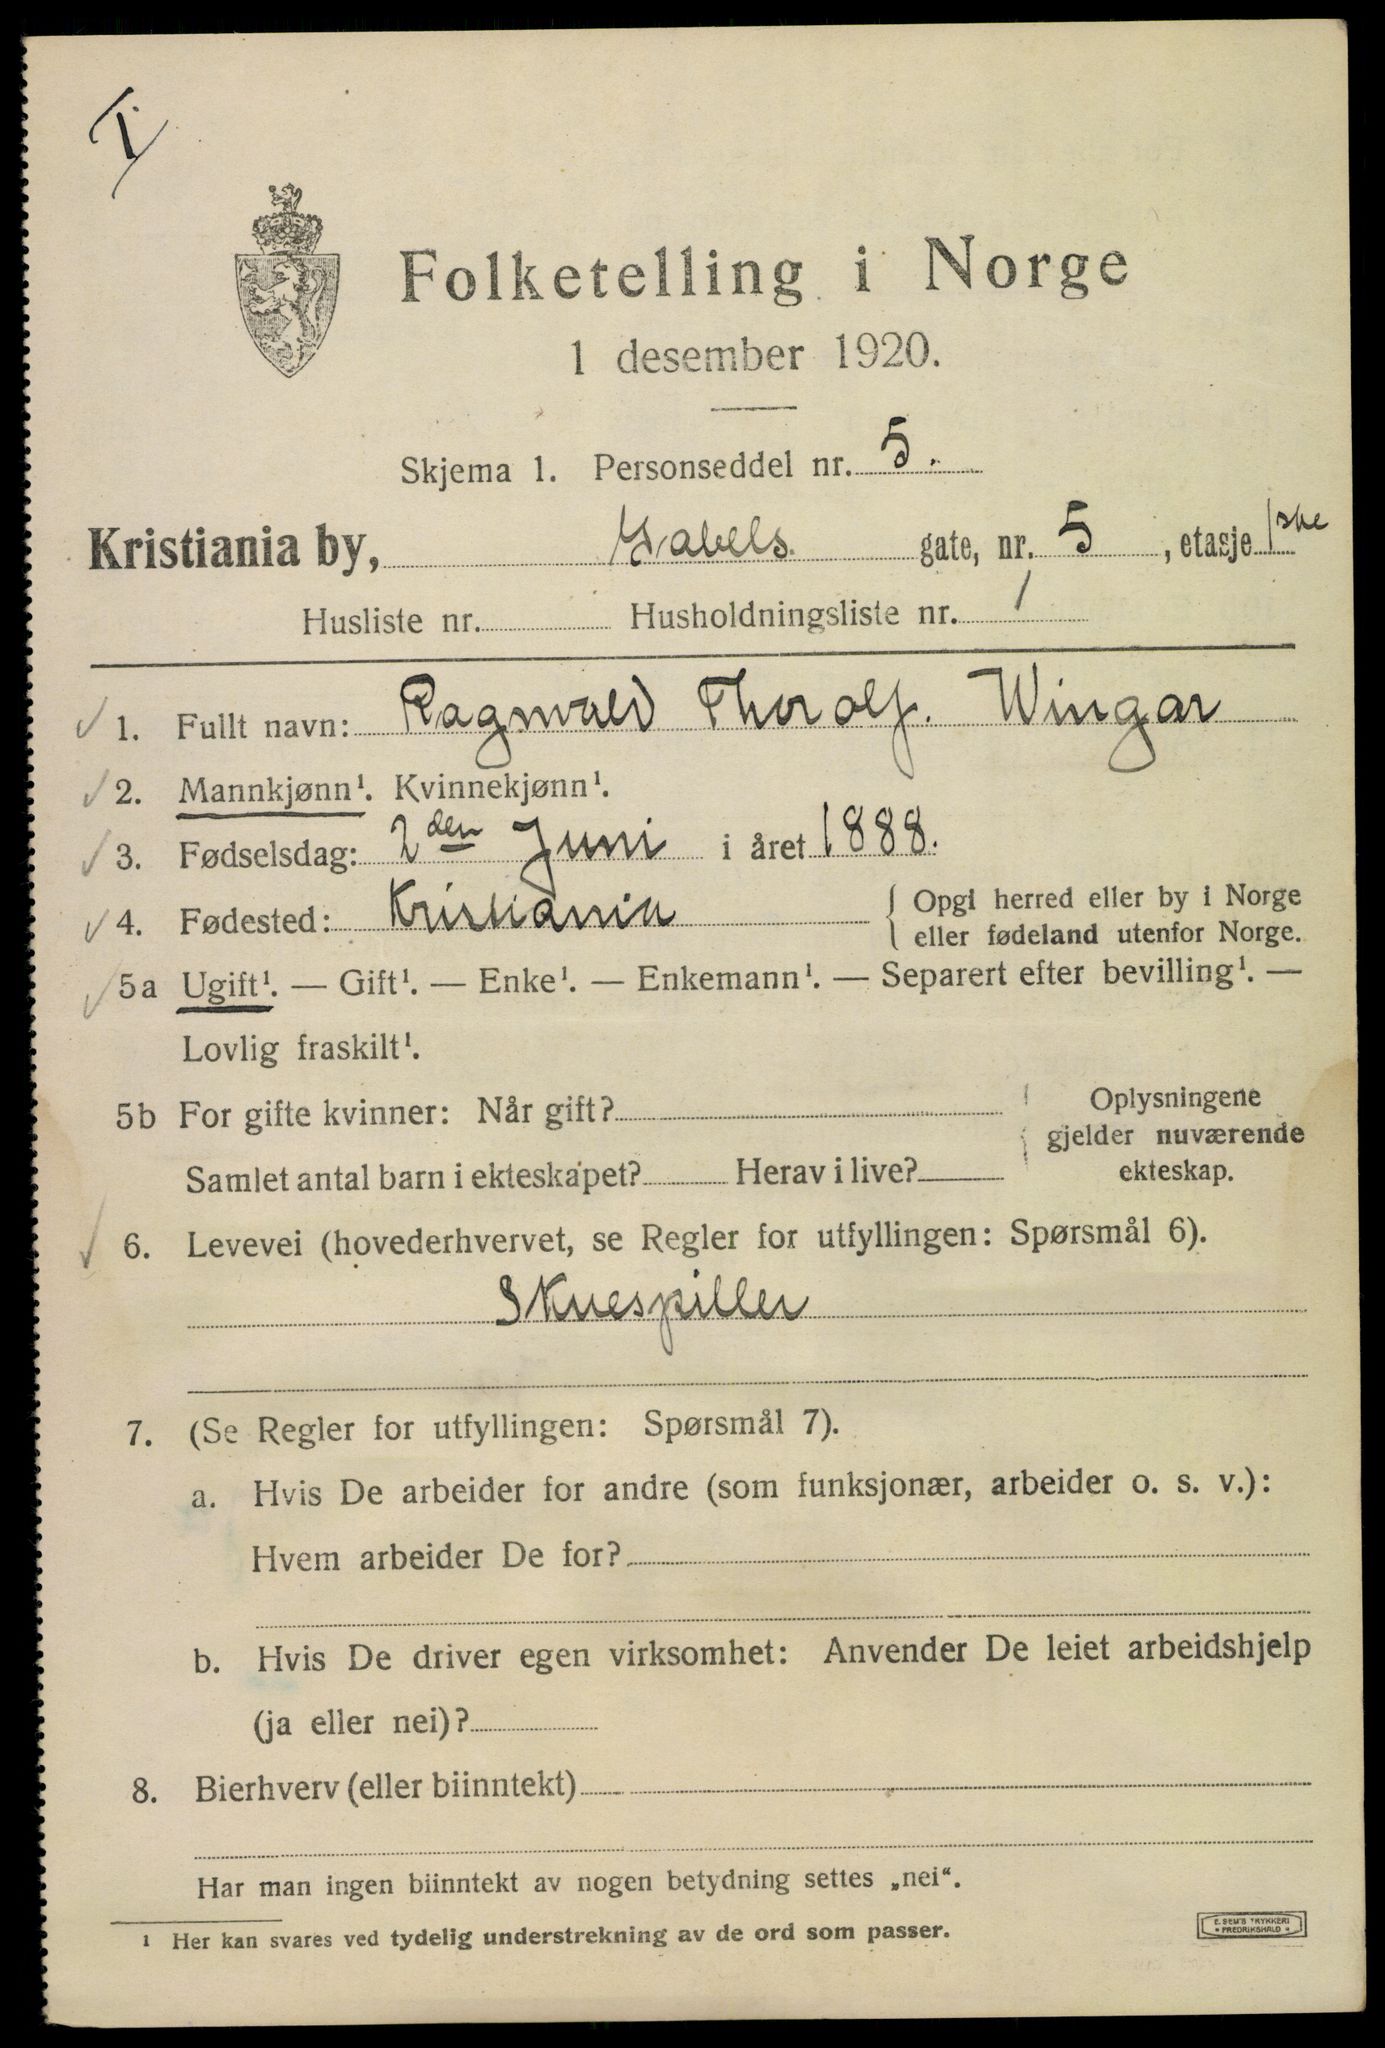 I
Folketelling i Norge
1 desember 1920.
Skjema 1. Personseddel nr. 5.
Kristiania by, Gabels. gate, nr. 5, etasje 1ste
Husliste nr. Husholdningsliste nr. 1
1. Fullt navn: Ragnvald Thorolf. Wingar
2. Mannkjønn¹. Kvinnekjønn¹.
3. Fødselsdag: 2den Juni i året 1888.
4. Fødested: Kristiania { Opgi herred eller by i Norge
eller fødeland utenfor Norge.
5a Ugift¹. — Gift¹. — Enke¹. — Enkemann¹. — Separert efter bevilling¹. —
Lovlig fraskilt¹.
5b For gifte kvinner: Når gift? Oplysningene
gjelder nuværende
Samlet antal barn i ekteskapet? Herav i live? ekteskap.
6. Levevei (hovederhvervet, se Regler for utfyllingen: Spørsmål 6).
Skuespiller
7. (Se Regler for utfyllingen: Spørsmål 7).
a. Hvis De arbeider for andre (som funksjonær, arbeider o. s. v.):
Hvem arbeider De for?
b. Hvis De driver egen virksomhet: Anvender De leiet arbeidshjelp
(ja eller nei)?
8. Bierhverv (eller biinntekt)
Har man ingen biinntekt av nogen betydning settes „nei“.
¹ Her kan svares ved tydelig understrekning av de ord som passer.
E. SEM'S TRYKKERI
• FREDRIKSHALD •